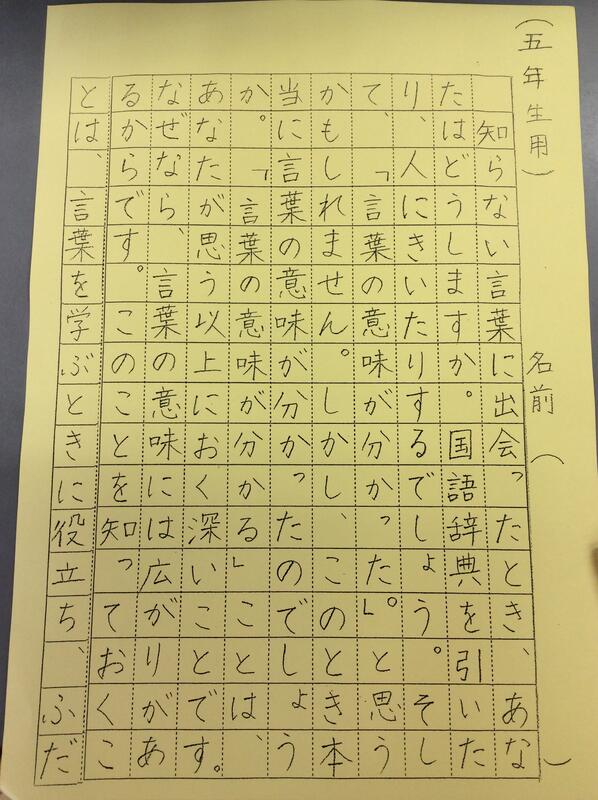 （五年生用）
名前（　）
知らない言葉に出会ったとき、あな
たはどうしますか。国語辞典を引いた
り、人にきいたりするでしょう。そし
て、「言葉の意味が分かった。」と思う
かもしれません。しかし、このとき本
当に言葉の意味が分かったのでしょう
か。「言葉の意味が分かる」ことは、
あなたが思う以上におく深いことです。
なぜなら、言葉の意味には広がりがあ
るからです。このことを知っておくこ
とは、言葉を学ぶときに役立ち、ふだ